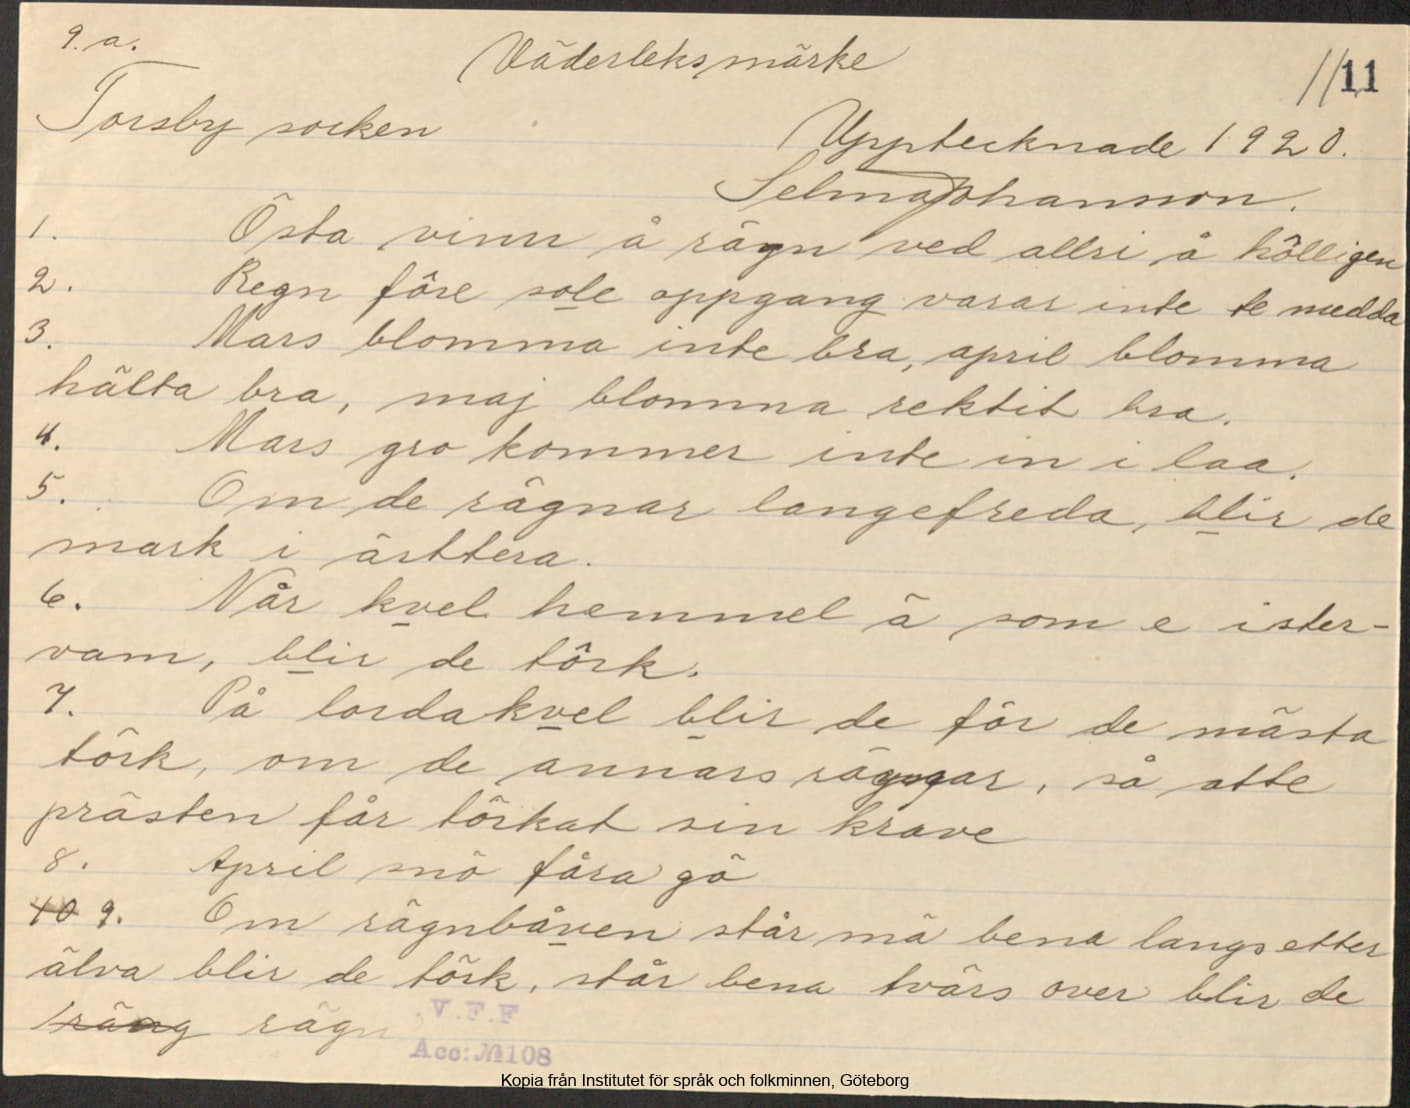 9. a.
Väderleksmärke
11
Torsby socken
Upptecknade 1920.
Selma Johansson.
1. Östa vinn å rägn ved allri å hölligen
2. Regn före sole oppgang varar inte te medda
3. Mars blomma inte bra, april blomma
hälta bra, maj blomma rektit bra.
4. Mars gro kommer inte in i laa.
5. Om de rägnar langefreda, blir de
mark i ärttera.
6. Når kvel hemmel ä som e ister-
vam, blir de törk.
7. På lordakvel blir de för de mästa
törk, om de annars rängar, så atte
prästen får törkat sin krave
8. April snö fåra gö
10 9. Om rägnbåven står mä bena langs etter
älva blir de törk, står bena tvärs over blir de
räng rägn
V.F.F
Acc: № 108
Kopia från Institutet för språk och folkminnen, Göteborg